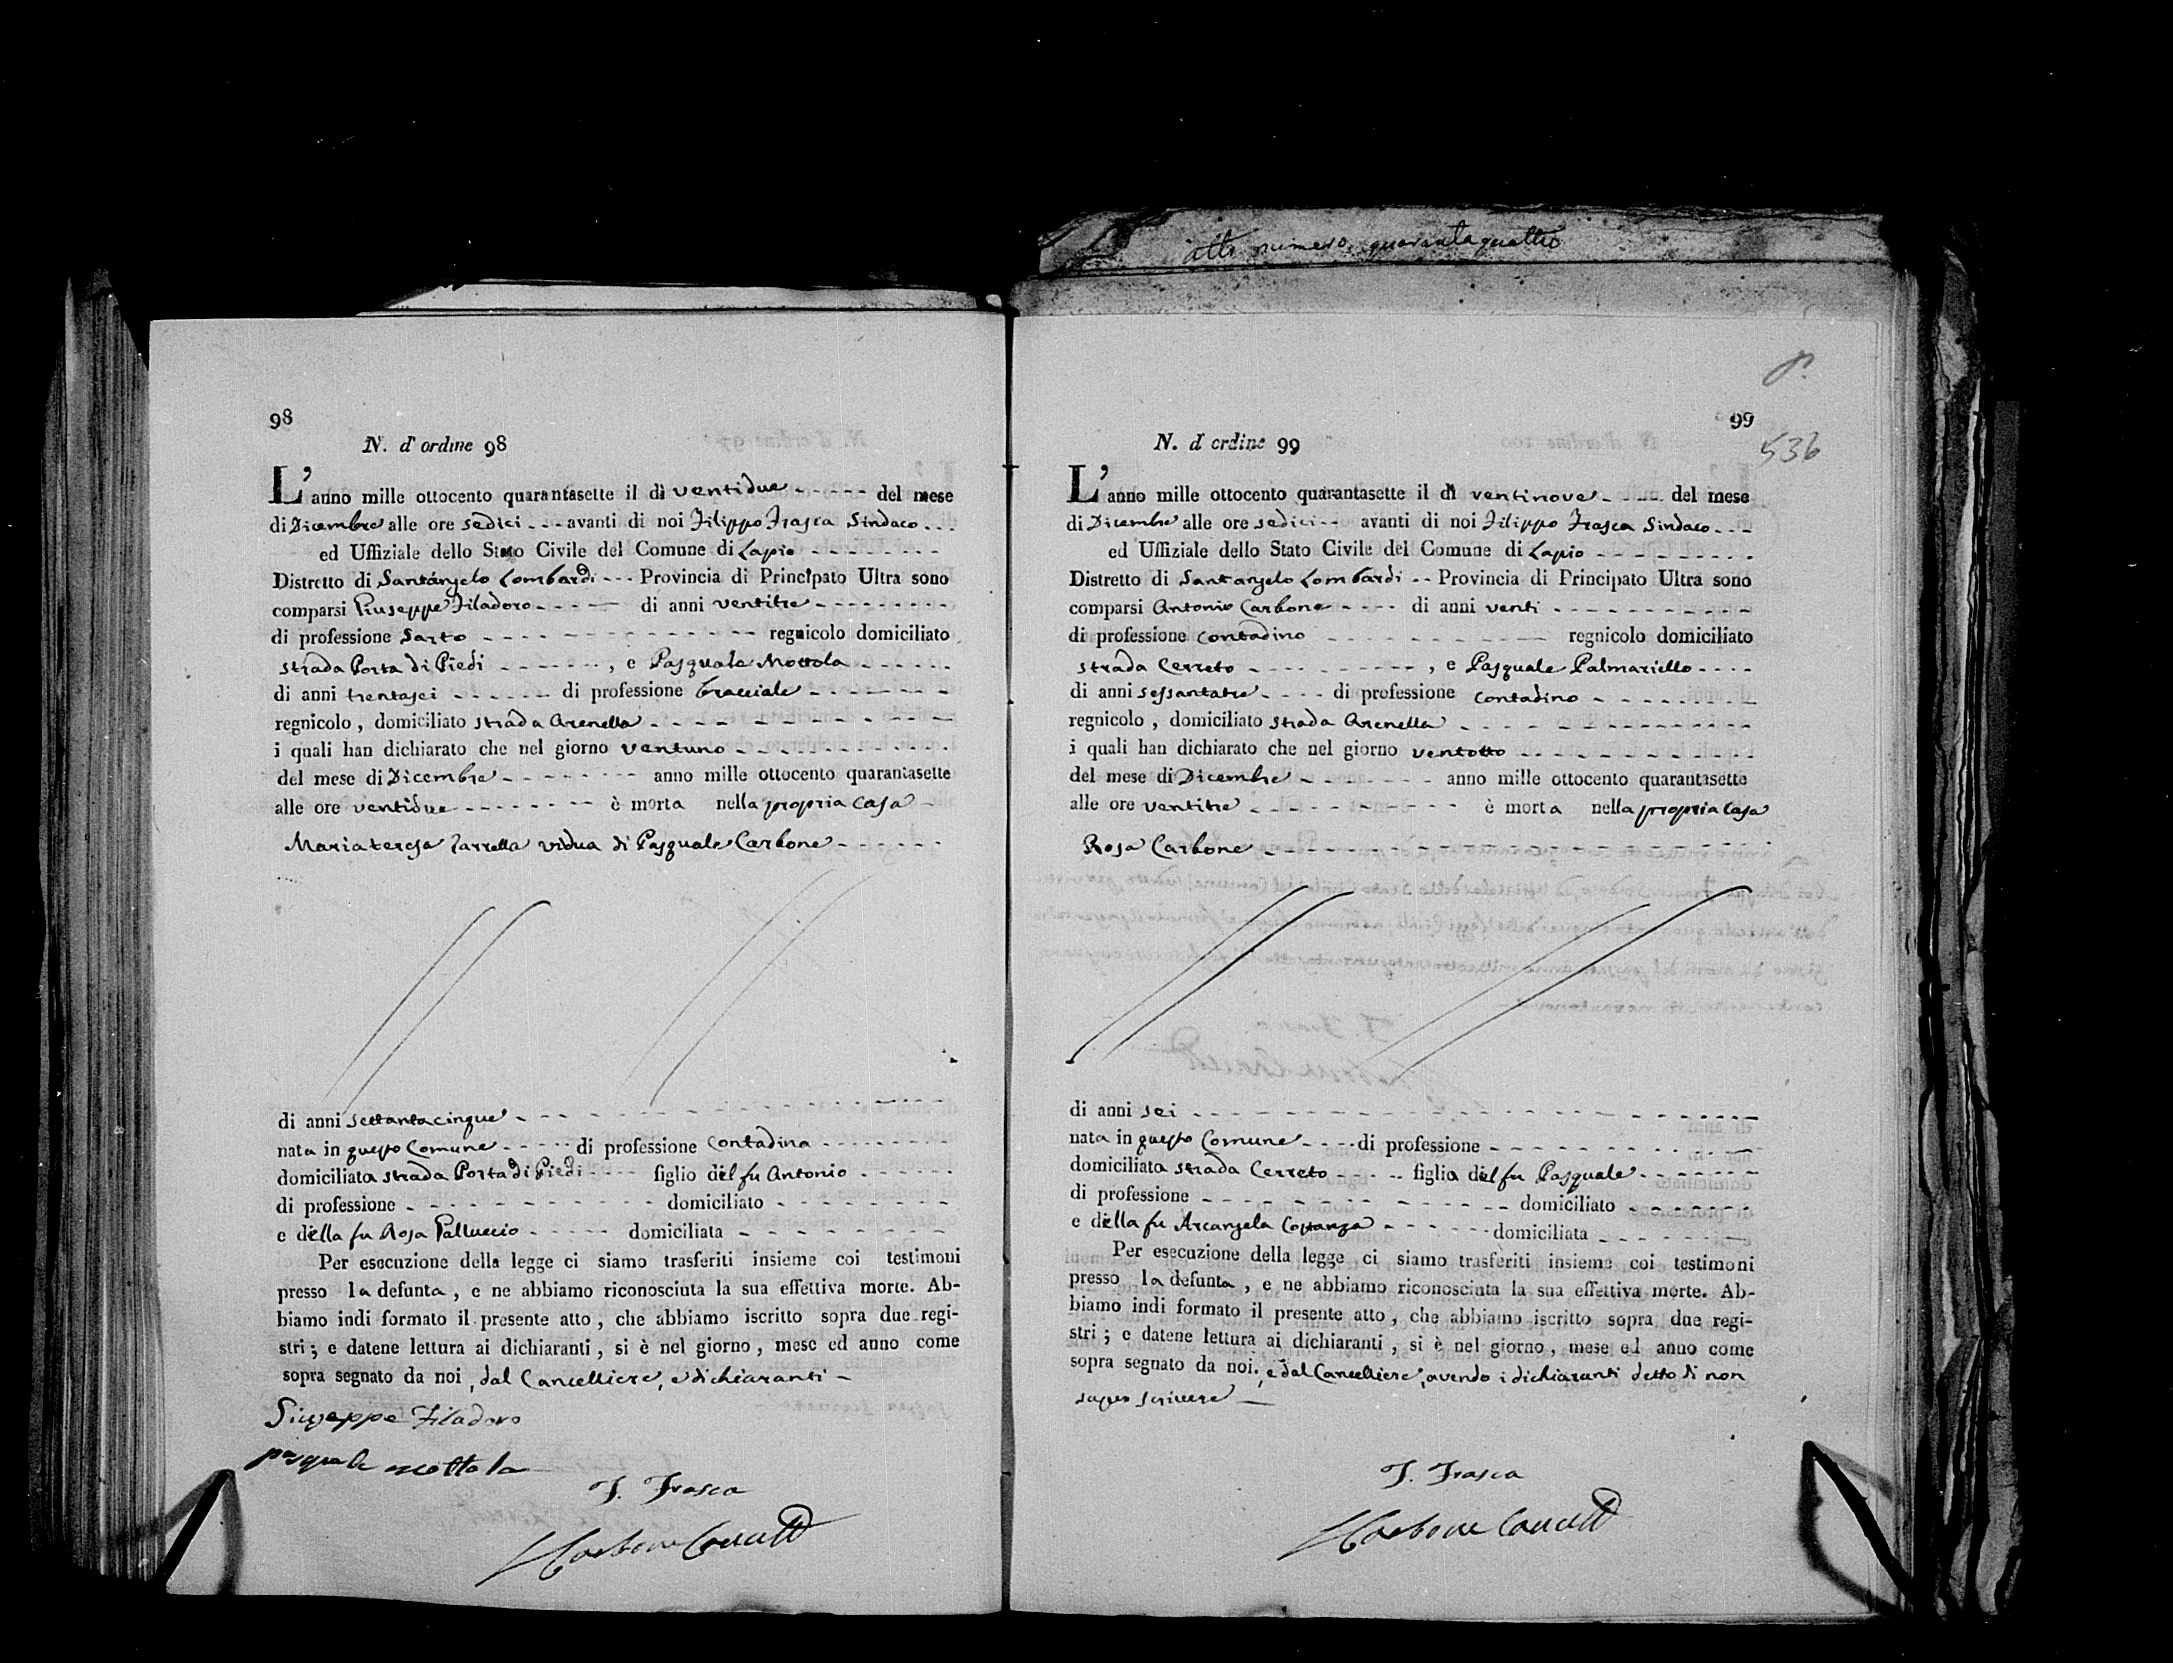 atto numero quarantaquattro
98
N. d'ordine 98
L'anno mille ottocento quarantasette il dì ventidue del mese
di Dicembre alle ore sedici avanti di noi Filippo Frasca Sindaco
ed Uffiziale dello Stato Civile del Comune di Lapio
Distretto di Santángelo Lombardi Provincia di Principato Ultra sono
comparsi Giuseppe Filadoro di anni ventitre
di professione Sarto regnicolo domiciliato
strada Porta di Piedi , e Pasquale Mottola
di anni trentasei di professione bracciale
regnicolo , domiciliato strada Arenella
i quali han dichiarato che nel giorno ventuno
del mese di Dicembre anno mille ottocento quarantasette
alle ore ventidue è morta nella propria casa
Mariateresa Zarrella vidua di Pasquale Carbone
di anni settantacinque
nata in questo Comune di professione contadina
domiciliata strada Porta di Piedi figlio del fu Antonio
di professione domiciliato
e della fu Rosa Palluccio domiciliata
Per esecuzione della legge ci siamo trasferiti insieme coi testimoni
presso la defunta , e ne abbiamo riconosciuta la sua effettiva morte. Ab-
biamo indi formato il presente atto , che abbiamo iscritto sopra due regi-
stri ; e datene lettura ai dichiaranti , si è nel giorno , mese ed anno come
sopra segnato da noi , dal Cancelliere, e dichiaranti
Giuseppe Filadoro
pasquale mottola
F. Frasca
Carbone
99
536
N. d'ordine 99
L'anno mille ottocento quarantasette il dì ventinove del mese
di Dicembre alle ore sedici avanti di noi Filippo Frasca Sindaco
ed Uffiziale dello Stato Civile del Comune di Lapio
Distretto di Santangelo Lombardi Provincia di Principato Ultra sono
comparsi Antonio Carbone di anni venti
di professione contadino regnicolo domiciliato
strada Cerreto , e Pasquale Palmariello
di anni sessantatre di professione contadino
regnicolo , domiciliato strada Arenella
i quali han dichiarato che nel giorno ventotto
del mese di Dicembre anno mille ottocento quarantasette
alle ore ventitre è morta nella propria casa
Rosa Carbone
di anni sei
nata in questo Comune di professione
domiciliata strada Cerreto figlia del fu Pasquale
di professione domiciliato
e della fu Arcangela Costanza domiciliata
Per esecuzione della legge ci siamo trasferiti insieme coi testimoni
presso la defunta , e ne abbiamo riconosciuta la sua effettiva morte. Ab-
biamo indi formato il presente atto , che abbiamo iscritto sopra due regi-
stri ; e datene lettura ai dichiaranti , si è nel giorno , mese ed anno come
sopra segnato da noi , e dal Cancelliere, avendo i dichiaranti detto di non
saper scrivere
F. Frasca
Carbone